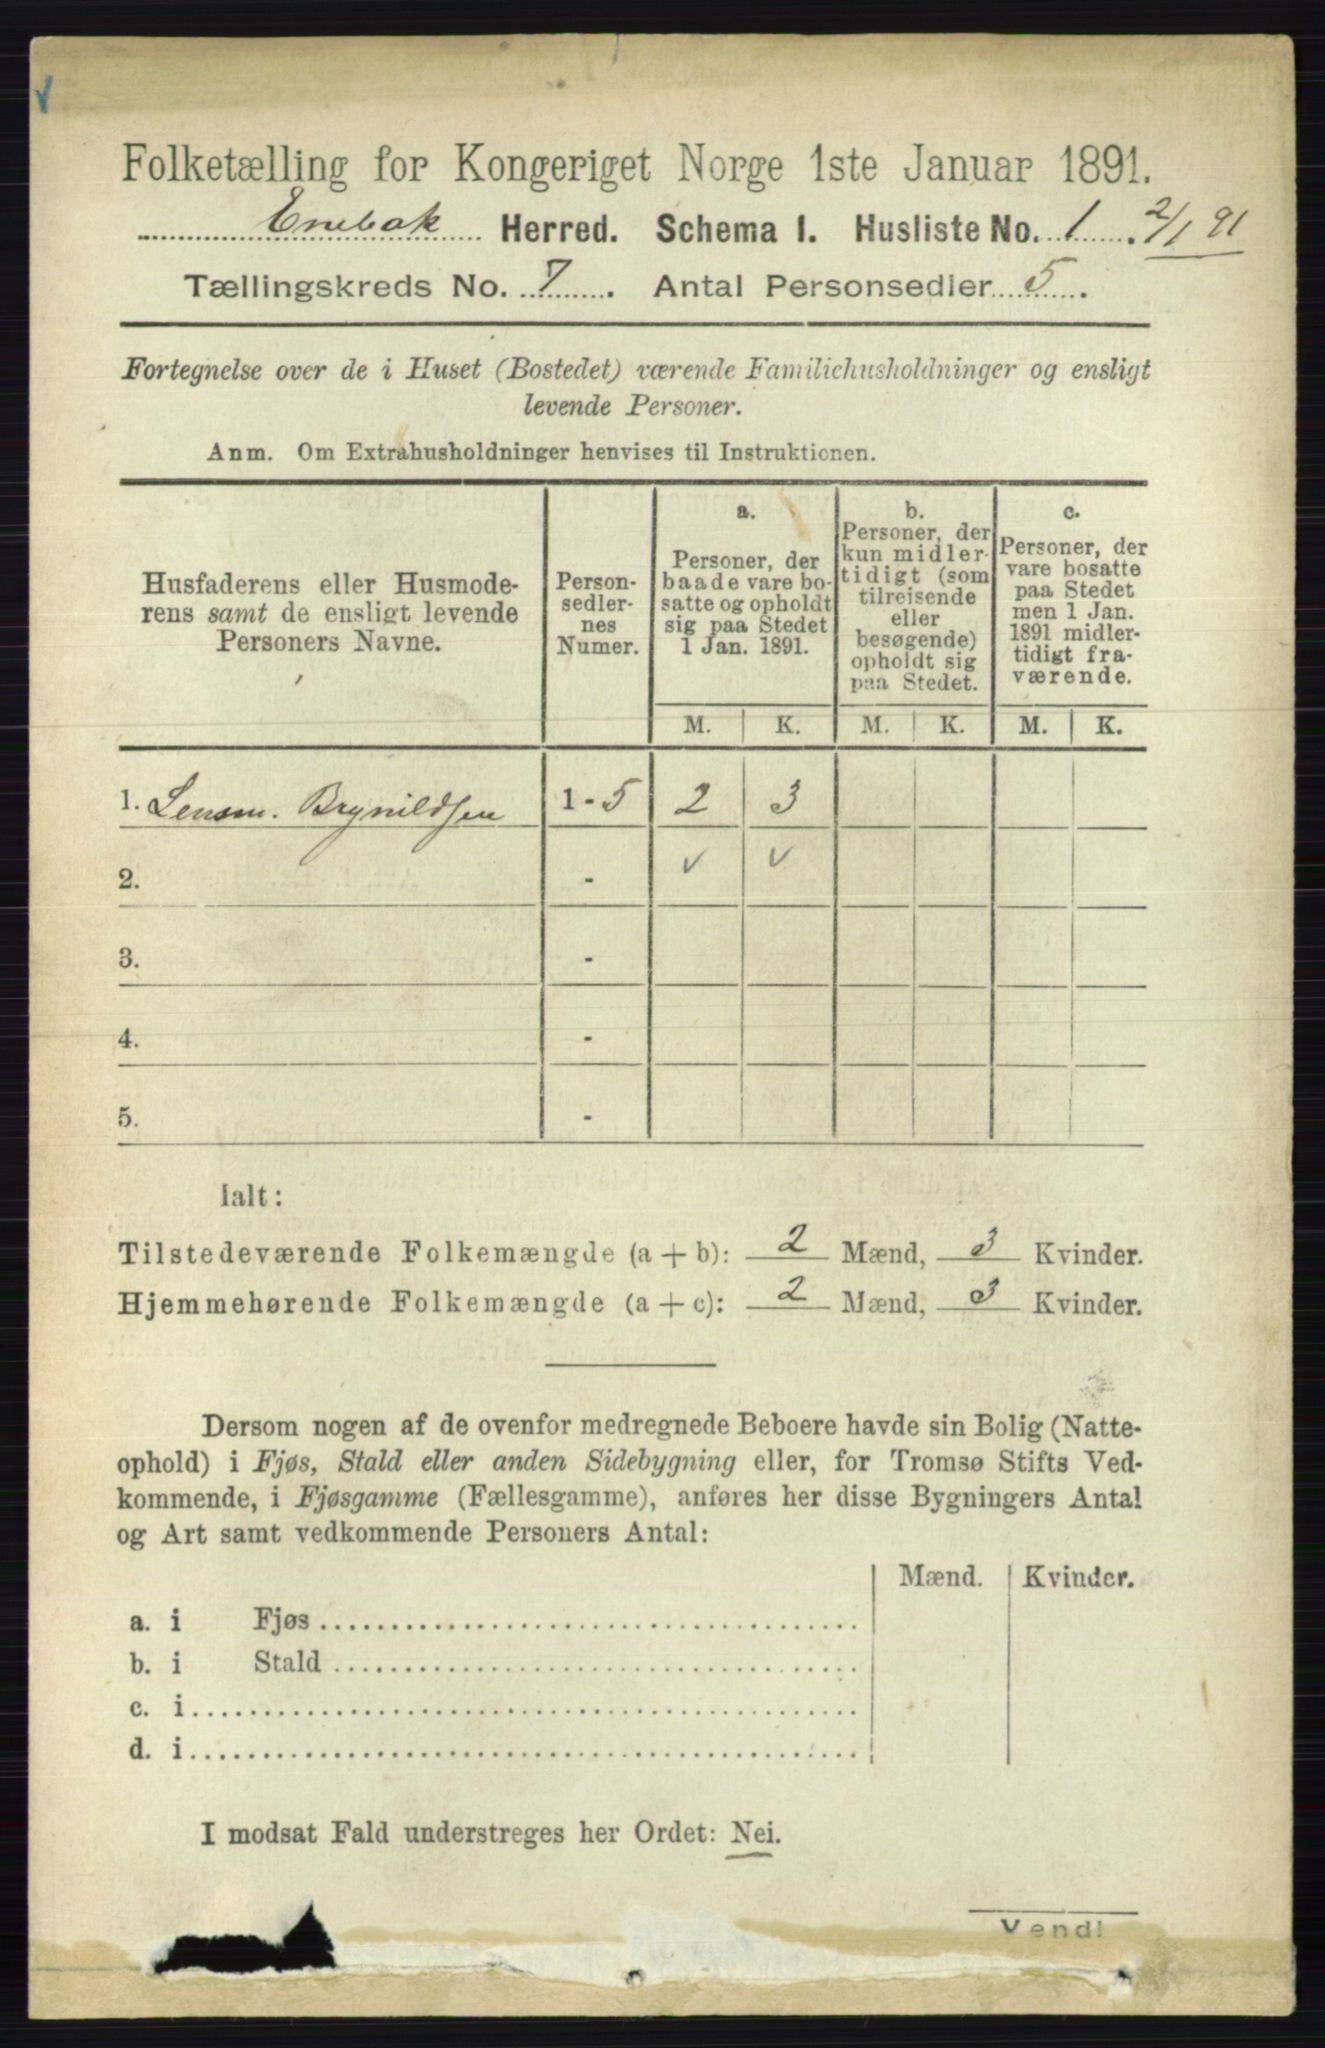 Folketælling for Kongeriget Norge 1ste Januar 1891.
Enebak Herred. Schema I. Husliste No. 1. 2/1 91
Tællingskreds No. 7. Antal Personsedler 5.
Fortegnelse over de i Huset (Bostedet) værende Familiehusholdninger og ensligt
levende Personer.
Anm. Om Extrahusholdninger henvises til Instruktionen.
Husfaderens eller Husmode-
rens samt de ensligt levende
Personers Navne.
Person-
sedler-
nes
Numer.
a.
Personer, der
baade vare bo-
satte og opholdt
sig paa Stedet
1 Jan. 1891.
b.
Personer, der
kun midler-
tidigt (som
tilreisende
eller
besøgende)
opholdt sig
paa Stedet.
c.
Personer, der
vare bosatte
paa Stedet
men 1 Jan.
1891 midler-
tidigt fra-
værende.
M. K. M. K. M. K.
1. Lensm. Brynildsen 1-5 2 3
2. - ✓ ✓
3. -
4. -
5. -
Ialt:
Tilstedeværende Folkemængde (a + b): 2 Mænd, 3 Kvinder.
Hjemmehørende Folkemængde (a + c): 2 Mænd, 3 Kvinder.
Dersom nogen af de ovenfor medregnede Beboere havde sin Bolig (Natte-
ophold) i Fjøs, Stald eller anden Sidebygning eller, for Tromsø Stifts Ved-
kommende, i Fjøsgamme (Fællesgamme), anføres her disse Bygningers Antal
og Art samt vedkommende Personers Antal:
Mænd. Kvinder.
a. i Fjøs
b. i Stald
c. i
d. i
I modsat Fald understreges her Ordet: Nei.
Vend!